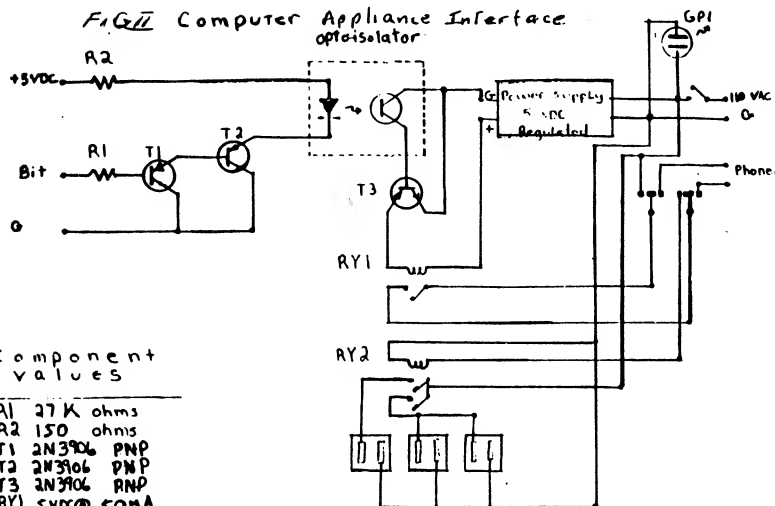 FIG II Computer Appliance Interface
optoisolator
GP1
R2
+5VDC
G Power Supply
5 VDC
+ Regulated
110 VAC
G
R1
T1
T2
Bit
Phone
T3
G
RY1
RY2
omponent
values
R1 27K ohms
R2 150 ohms
T1 2N3906 PNP
T2 2N3906 PNP
T3 2N3906 PNP
RY1 5VDC@ 50MA